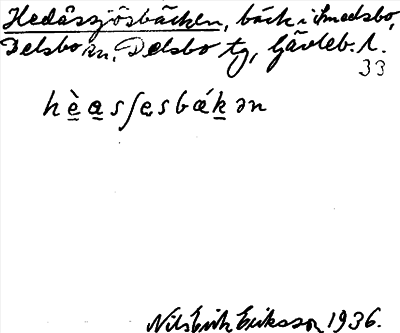 Hedåssjösbäcken, bäck i Smedsbo,
Delsbo sn, Delsbo tg, Gävleb. l.
33
hè̱a̱sʃesbáḵən
Nils Erik Eriksson 1936.